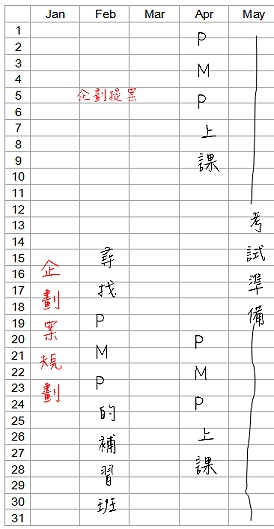 Jan Feb Mar Apr May
1
2
3
4
5
6
7
8
9
10
11
12
13
14
15
16
17
18
19
20
21
22
23
24
25
26
27
28
29
30
31
企劃案規劃
企劃提案
尋找PMP的補習班
PMP上課
PMP上課
考試準備